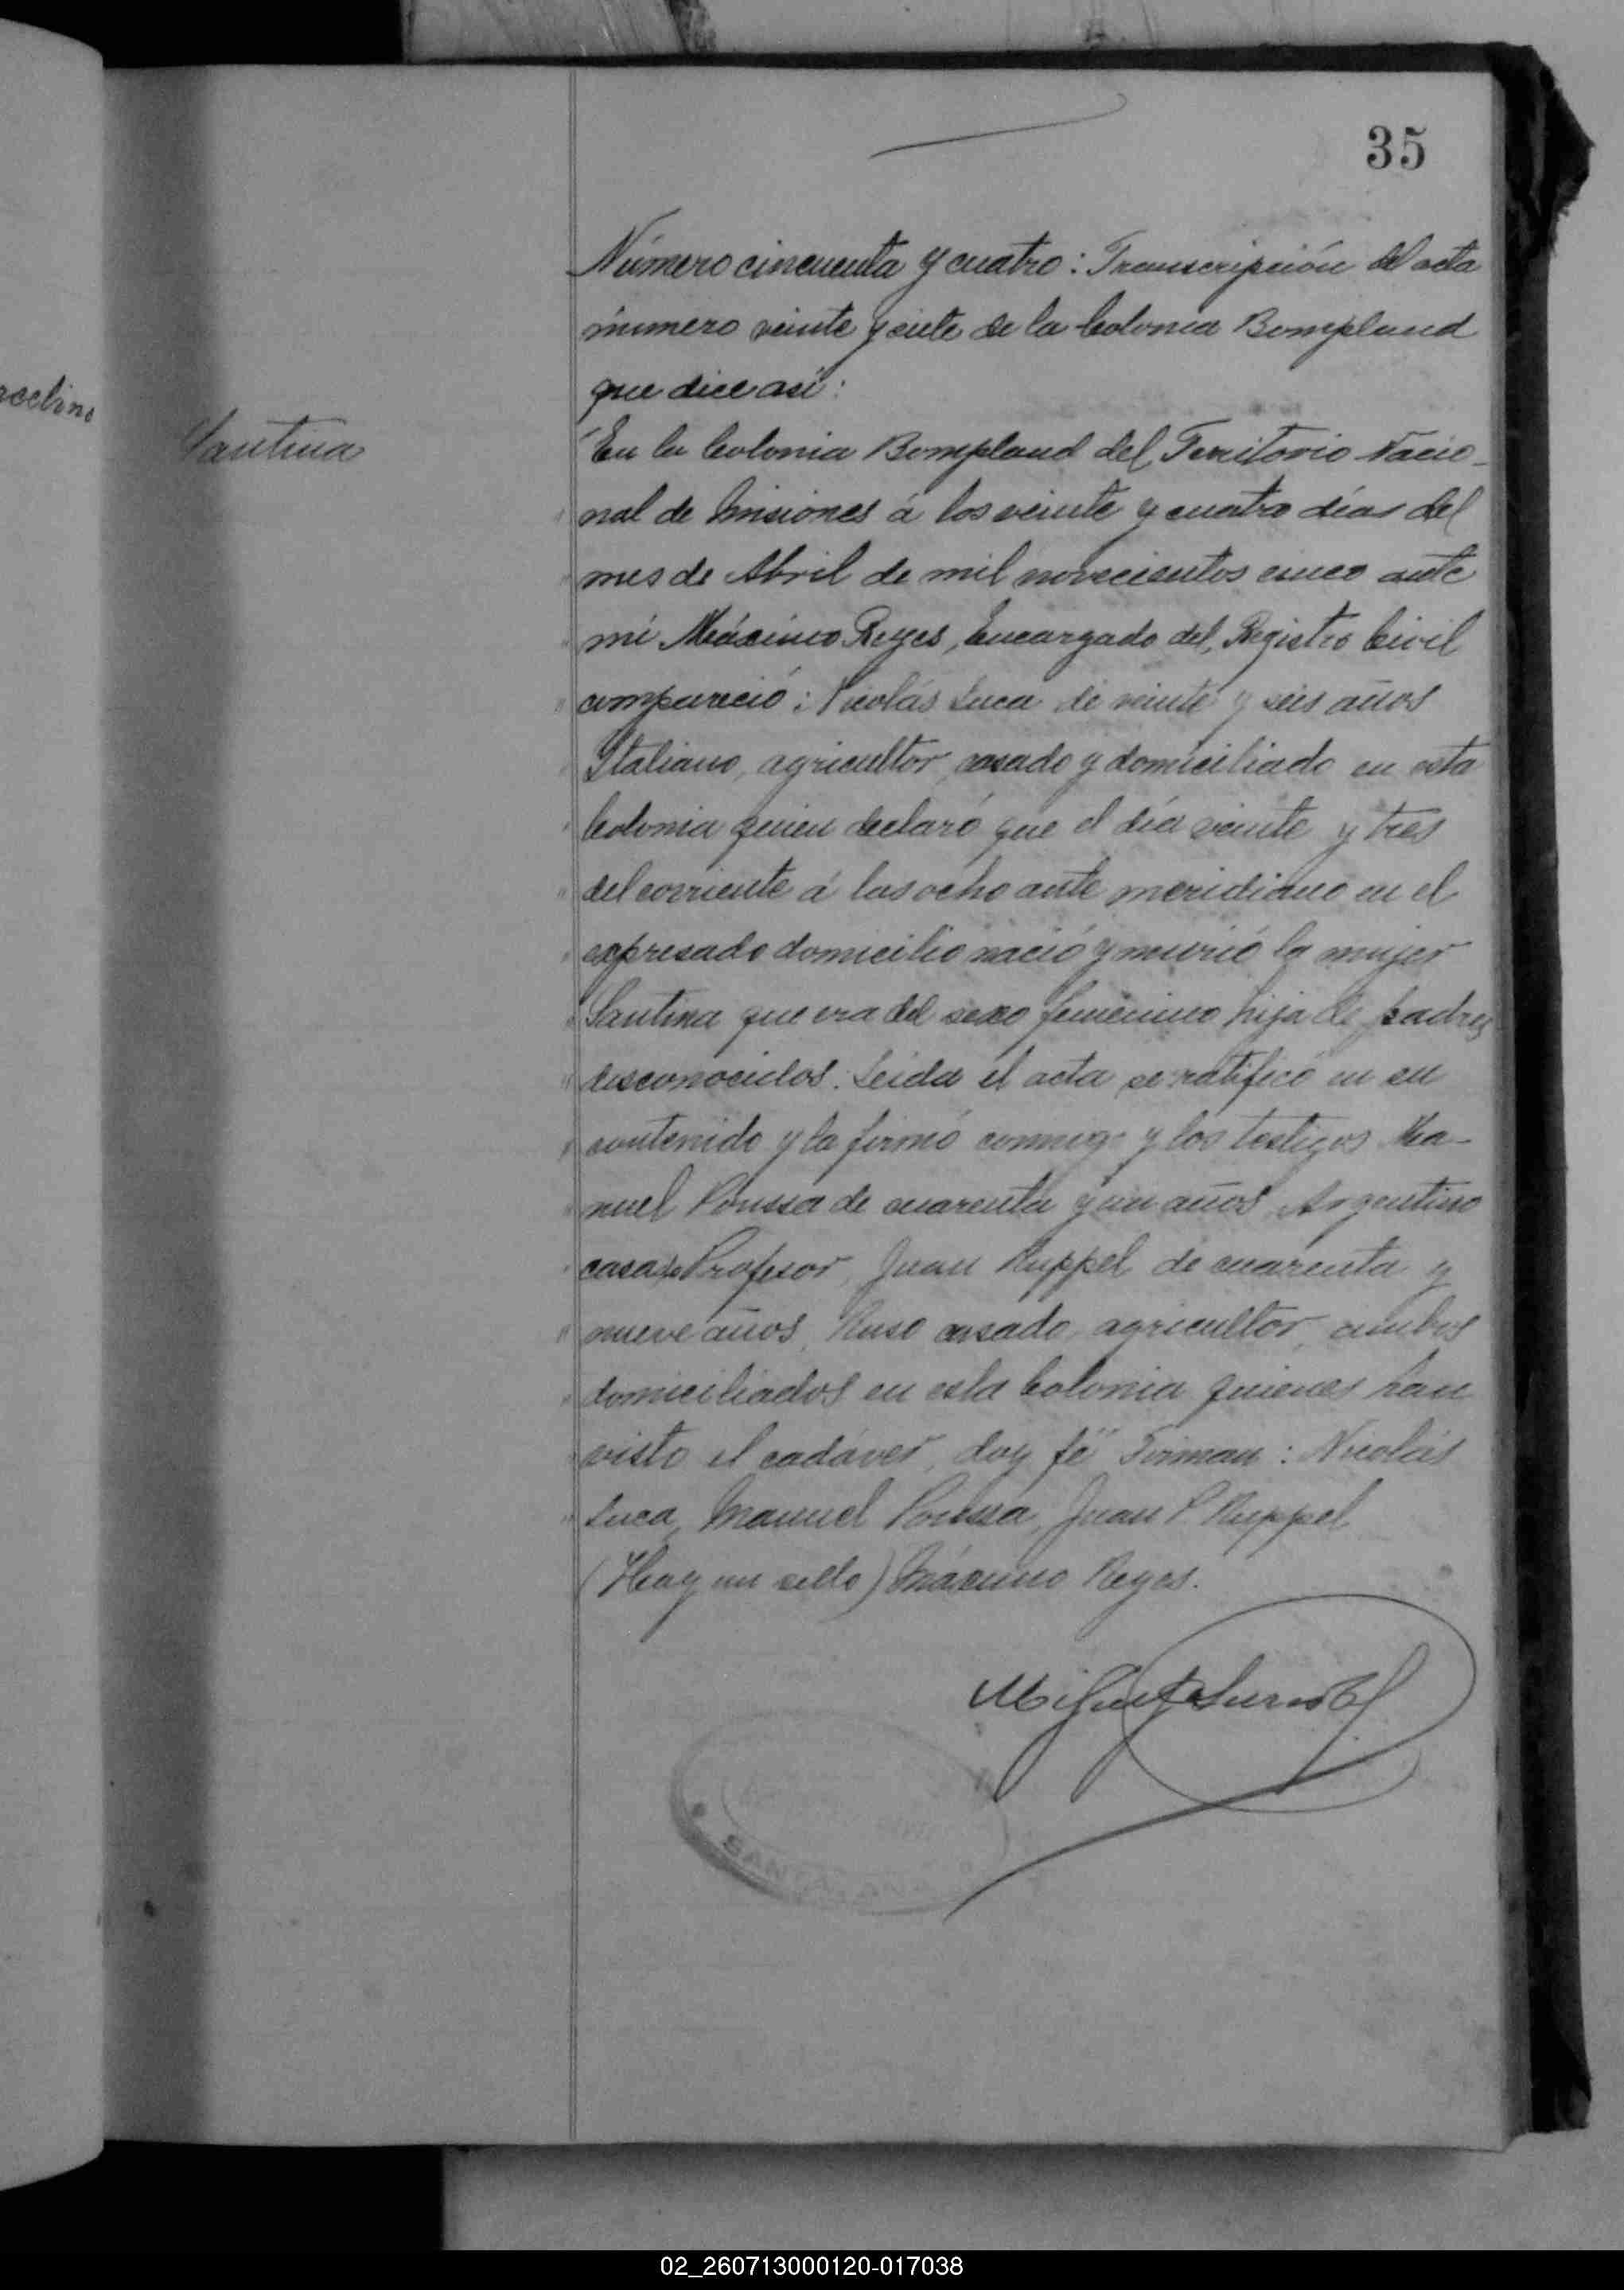 35
Número cincuenta y cuatro: Transcripción del acta
número veinte y siete de la Colonia Bompland
que dice asi:
Santina
"En la Colonia Bompland del Territorio Nacio-
" nal de Misiones á los veinte y cuatro días del
" mes de Abril de mil novecientos cinco ante
" mi Máximo Reyes, Encargado del Registro Civil
" compareció: Nicolás Luca de veinte y seis años
" Italiano, agricultor, casado y domiciliado en esta
" Colonia quien declaró que el día veinte y tres
" del corriente á las ocho ante meridiano en el
" expresado domicilio nació y murió la mujer
" Santina que era del sexo femenino hija de padres
" desconocidos. Leida el acta se ratificó en su
" contenido y la firmó conmigo y los testigos Ma-
" nuel de cuarenta y un años, Argentino
" casado Profesor, Juan Ruppel de cuarenta y
" nueve años, Ruso casado, agricultor, ambos
" domiciliados en esta Colonia quienes han
" visto el cadáver, doy fé" Firman: Nicolás
" Luca, Manuel Juan P. Ruppel
(Hay un sello) Máximo Reyes.
SANTA ANA
02_260713000120-017038